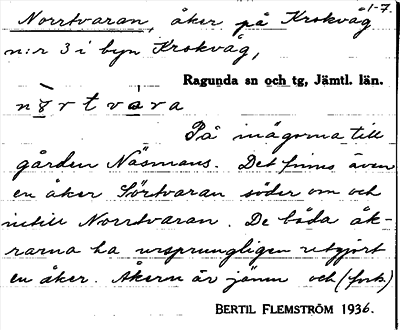 Norrtvaran, åker på Krokvåg 1-7.
n:r 3 i byn Krokvåg,
Ragunda sn och tg, Jämtl. län.
På inägorna till
gården Näsmans. Det finns även
en åker Sörtvaran söder om och
intill Norrtvaran. De båda åk-
rarna ha ursprungligen utgjort
en åker. Åkern är jämn och (forts.)
BERTIL FLEMSTRÖM 1936.